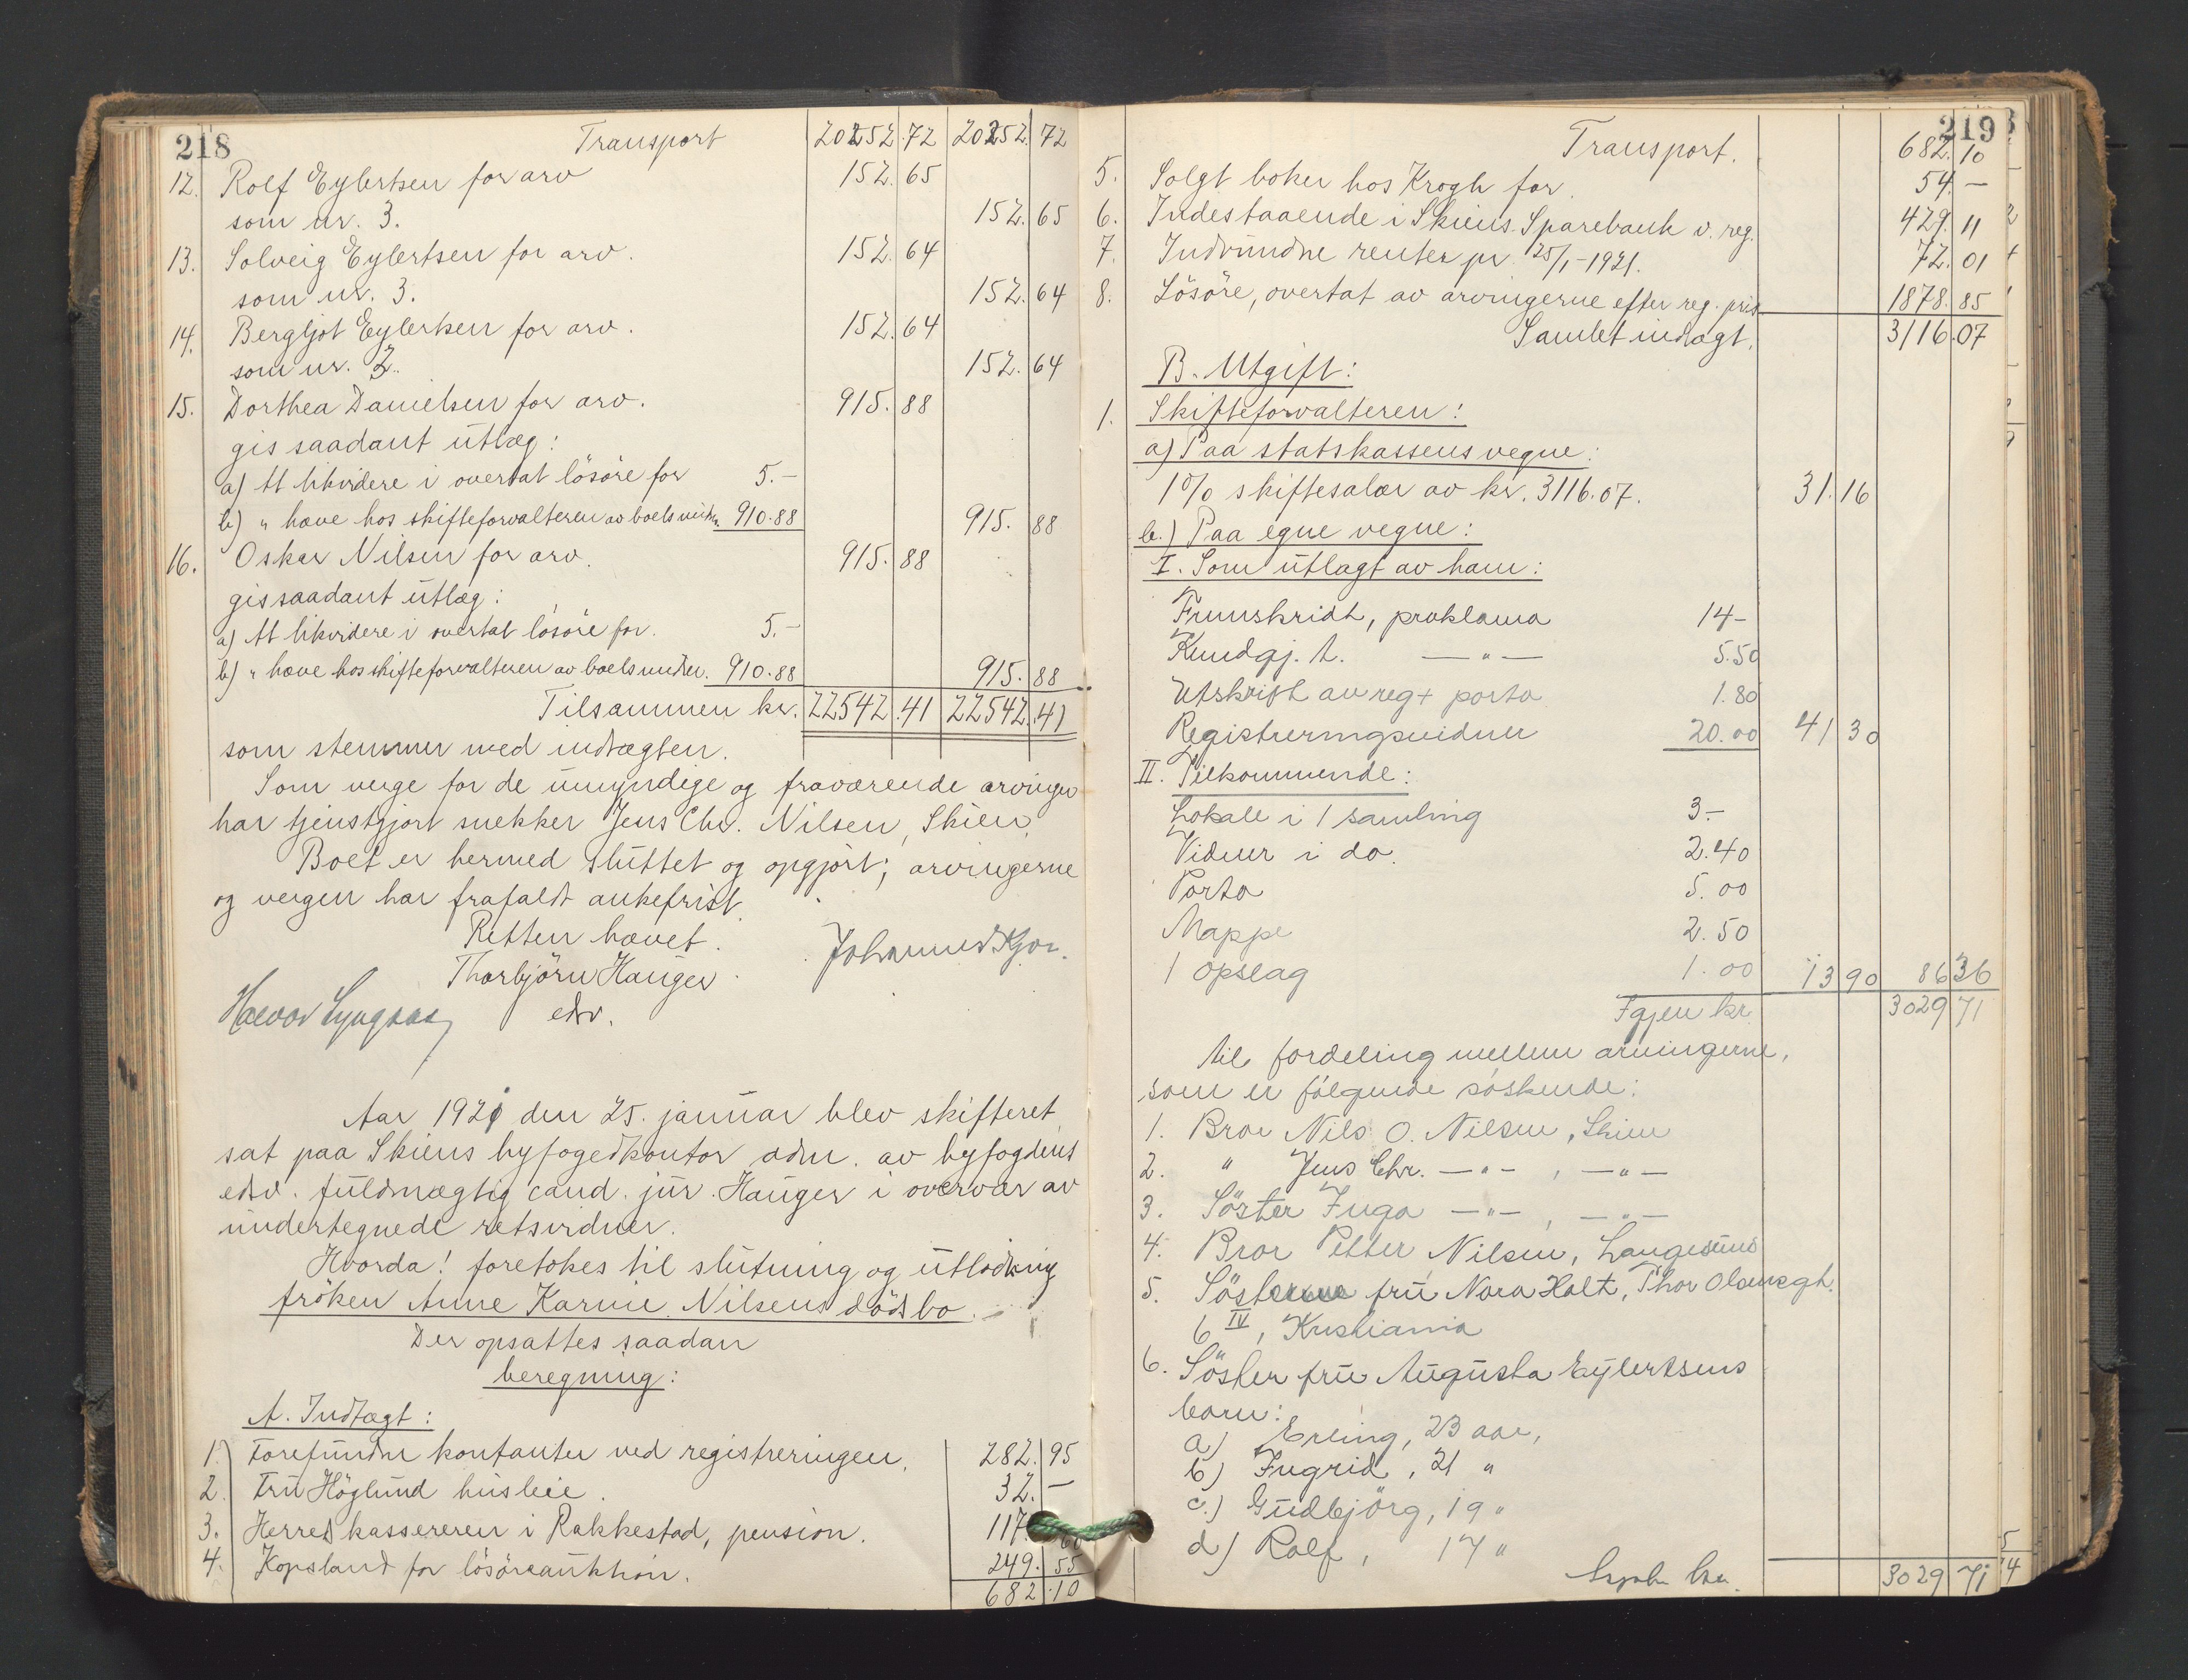 218
Transport 20252.72 20252.72
12. Rolf Eylertsen for arv 152.65
som nr. 3. 152.65
13. Solveig Eylertsen for arv. 152.64
som nr. 3. 152.64
14. Bergljot Eylertsen for arv. 152.64
som nr. 3. 152.64
15. Dorthea Danielsen for arv. 915.88
gis saadant utlæg:
a) At likvidere i overtat lösöre for 5.-
b) " hæve hos skifteforvalteren av boets midler 910.88 915.88
16. Oskar Nilsen for arv. 915.88
gis saadant utlæg:
a) At likvidere i overtat lösöre for. 5.-
b) " hæve hos skifteforvalteren av boets midler. 910.88 915.88
Tilsammen kr. 22542.41 22542.41
som stemmer med indtægten.
Som verge for de umyndige og fraværende arvinger
har tjenstgjort snekker Jens Chr. Nilsen, Skien.
Boet er hermed sluttet og opgjört; arvingerne
og vergen har frafaldt ankefrist.
Retten hævet.
Thorbjörn Hauger
edsv.
Halvor Lyngaas
Aar 1921 den 25. januar blev skifteret
sat paa Skiens byfogedkontor adm. av byfogdens
edsv. fuldmægtig cand. jur. Hauger i overvær av
undertegnede retsvidner.
Hvorda! foretokes til slutning og utlodning
fröken Anne Karine Nilsens dödsbo.
Der opsattes saadan
beregning:
A. Indtægt:
1.) Forefundne kontanter ved registreringen. 282.95
2. Fru Höglund husleie. 32.-
3. Herredskassereren i Rakkestad, pension. 117.60
4. Kopsland for lösöreauktion. 249.55
682.10
219
Transport. 682.10
5. Solgt böker hos Krogh for. 54.-
6. Indestaaende i Skiens Sparebank v. reg. 429.11
7. Indvundne renter pr. 25/1-1921. 72.01
8. Lösöre, overtat av arvingerne efter reg. pris 1878.85
Samlet indtægt. 3116.07
B. Utgift:
1. Skifteforvalteren:
a) Paa statskassens vegne:
1% skiftesalær av kr. 3116.07. 31.16
b.) Paa egne vegne:
I. Som utlagt av ham:
Frimskridt, proklama 14-
Kundgj. t. —"— 5.50
Utskrift av reg + porto 1.80
Registreringsvidner 20.00 41 30
II. Tilkommende:
Lokale i 1 samling 3-
Vidner i do. 2.40
Porto 5.00
Mappe 2.50
1 opslag 1.00 13 90 86 36
Igjen kr. 3029 71
til fordeling mellem arvingerne,
som er følgende søskende:
1. Bror Nils O. Nilsen, Skien
2. " Jens Chr. —"—, —"—
3. Söster Inga —"—, —"—
4. Bror Petter Nilsen, Langesund
5. Söster fru Nora Holt, Thor Olsensgt.
6 IV, Kristiania
6. Söster fru Augusta Eylertsens
barn:
a) Erling, 23 aar,
b) Ingrid, 21 "
c.) Gudbjörg, 19 "
d) Rolf, 17 "
3029 71